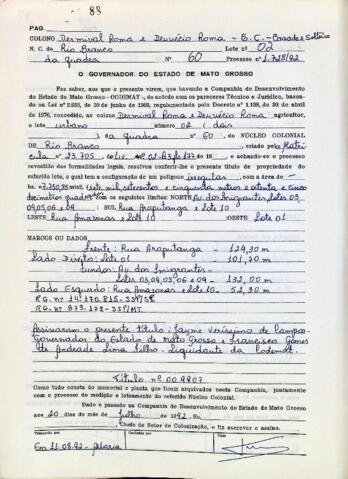 88
PAG.
COLONO Dermival Roma e Deuvécio Roma - B.C. - Casado e Solteiro
N. C. de Rio Branco Lote nº 02
da quadra Nº 60 Processo nº 1.728/92
O GOVERNADOR DO ESTADO DE MATO GROSSO
Faz saber, aos que a presente virem, que havendo a Companhia de Desenvolvimento
do Estado de Mato Grosso - CODEMAT, de acordo com os pareceres Técnico e Jurídico, basea-
do na Lei nº 2.933, de 10 de junho de 1969, regulamentada pelo Decreto nº 1.138, de 30 de abril
de 1970, concedido, ao colono Dermival Roma e Deuvécio Roma agricultor,
o lote urbano número 02 (dois
) da quadra nº 60, do NÚCLEO COLONIAL
DE Rio Branco criado pela Matri
cula nº 23.705 do Liv. e achando-se o processo
revestido das formalidades legais, resolveu conferir-lhe o presente título de propriedade do
referido lote, o qual tem a configuração de um polígono irregular, com a área de
ha. 7.750,85 mts² (sete mil, setecentos e cinquenta metros e oitenta e cinco
decímetros quadr com os seguintes limites: NORTE Av. dos Imigrantes lotes 03,
04, 05, 06 e 09 SUL Rua Araputanga e lote 10
LESTE Rua Amazonas e lote 10 OESTE lote 01
MARCOS OU DADOS
Frente: Rua Araputanga - 124,30 m
Lado Direito: lote 01 - 101,70 m
Fundos: Av. dos Imigrantes -
lotes 03, 04, 05, 06 e 09 - 132,00 m
Lado Esquerdo: Rua Amazonas e lote 10 - 52,30 m
R.G. nº
R.G. nº
Assinaram o presente título: Jayme Veríssimo de Campos -
Governador do Estado de Mato Grosso e Francisco Gomes
de Andrade Lima Filho - Liquidante da Codemat.
Título nº 009907
Como tudo consta do memorial e planta que ficam arquivados nesta Companhia, juntamente
com o processo de medição e loteamento do referido Núcleo Colonial.
Dado e passado na Companhia de Desenvolvimento do Estado de Mato Grosso
aos 20 dias do mês de julho de 1992. Eu,
Chefe do Setor de Colonização, o fiz escrever e assino.
Transcrito por Conferido por Visto
Em 11.08.92 -